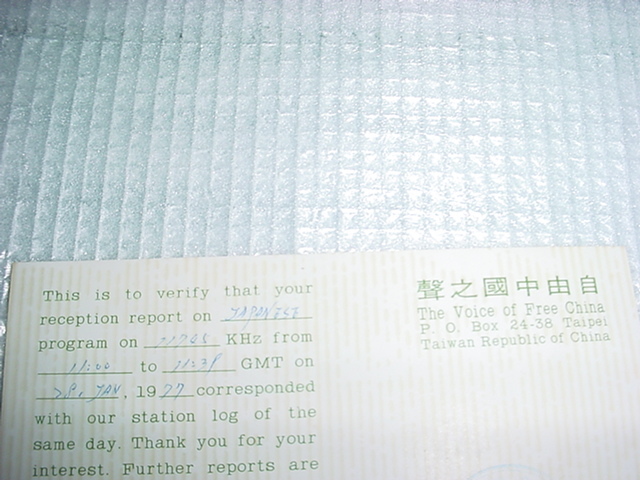 This is to verify that your
reception report on JAPANESE
program on KHz from
11:00 to GMT on
28. JAN, 1977 corresponded
with our station log of the
same day. Thank you for your
interest. Further reports are
聲之國中由自
The Voice of Free China
P. O. Box 24-38 Taipei
Taiwan Republic of China